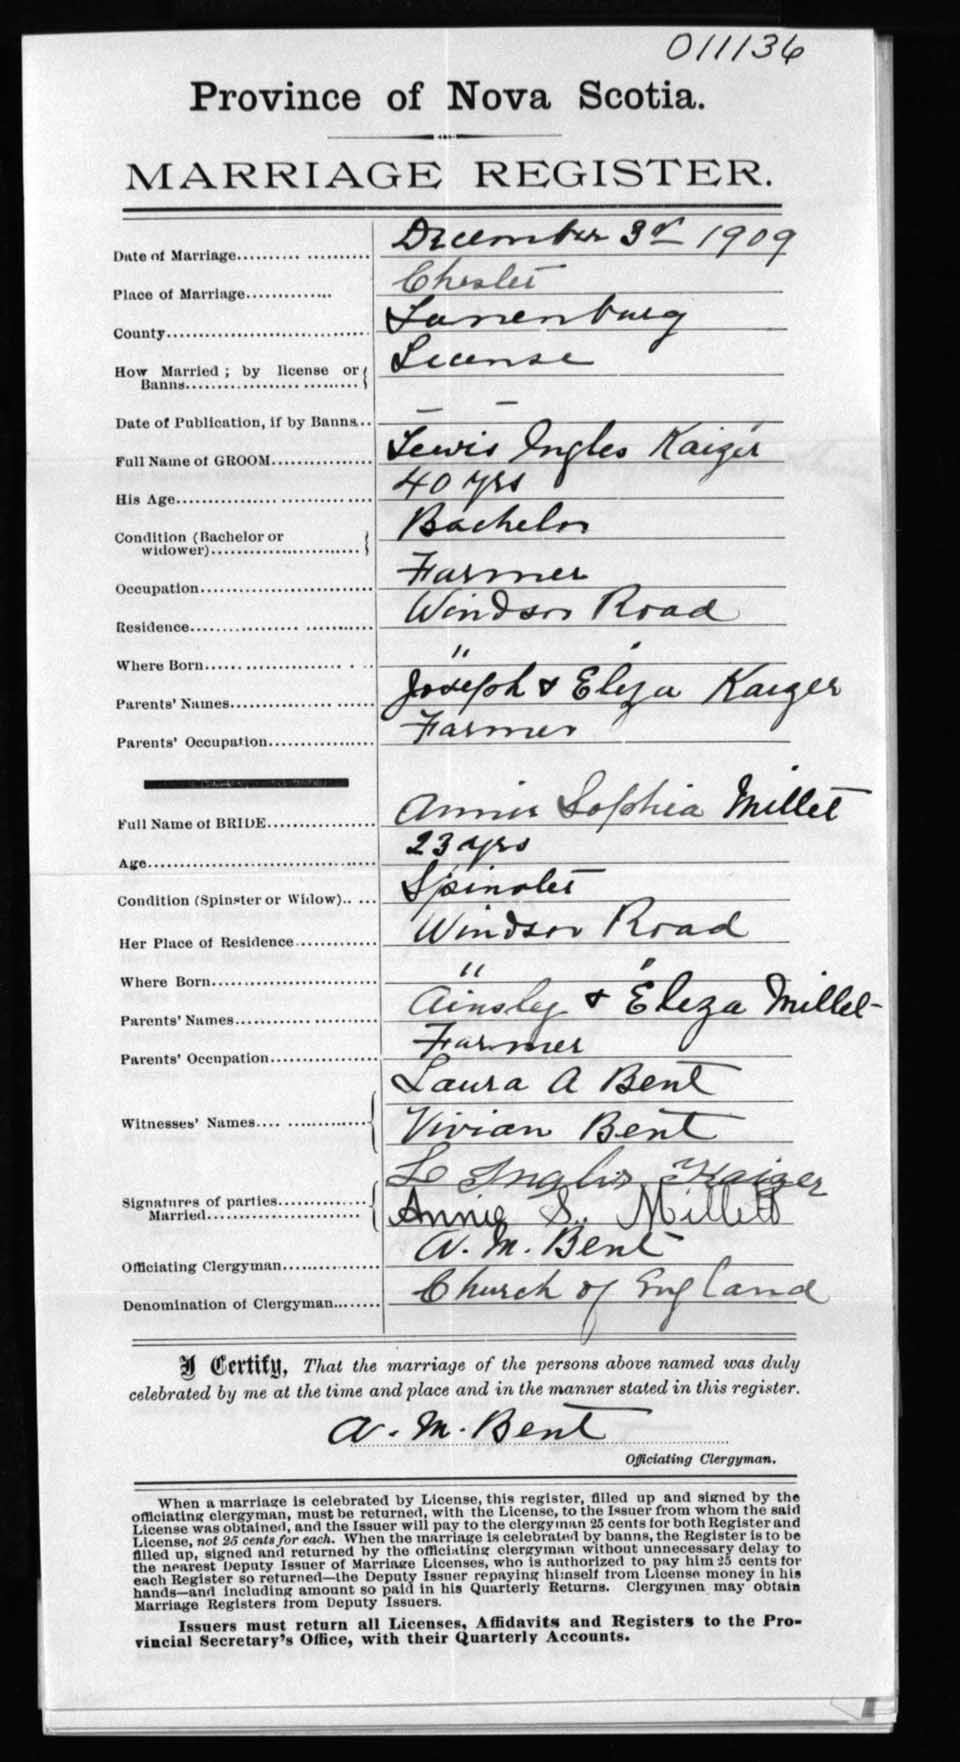 011136
Province of Nova Scotia.
MARRIAGE REGISTER.
Date of Marriage.................... December 3rd 1909
Place of Marriage............. Chester
County.............................. Lunenburg
How Married ; by license or Banns.............................. License
Date of Publication, if by Banns... – –
Full Name of GROOM................ Lewis Ingles Kaiger
His Age.............................. 40 yrs
Condition (Bachelor or widower)........................ Bachelor
Occupation.......................... Farmer
Residence............................ Windsor Road
Where Born......................... " "
Parents' Names..................... Joseph & Eliza Kaizer
Parents' Occupation................ Farmer
Full Name of BRIDE................ Annie Sophia Millet
Age................................... 23 yrs
Condition (Spinster or Widow)..... Spinster
Her Place of Residence............ Windsor Road
Where Born......................... " "
Parents' Names..................... Ainsley & Eliza Millet
Parents' Occupation................ Farmer
Laura A Bent
Witnesses' Names.................. Vivian Bent
Signatures of parties.............. L Inglis Kaizer
Married........................ Annie S. Millett
Officiating Clergyman............... A. M. Bent
Denomination of Clergyman........ Church of England
I Certify, That the marriage of the persons above named was duly
celebrated by me at the time and place and in the manner stated in this register.
A. M. Bent
Officiating Clergyman.
When a marriage is celebrated by License, this register, filled up and signed by the
officiating clergyman, must be returned, with the License, to the Issuer from whom the said
License was obtained, and the Issuer will pay to the clergyman 25 cents for both Register and
License, not 25 cents for each. When the marriage is celebrated by banns, the Register is to be
filled up, signed and returned by the officiating clergyman without unnecessary delay to
the nearest Deputy Issuer of Marriage Licenses, who is authorized to pay him 25 cents for
each Register so returned—the Deputy Issuer repaying himself from License money in his
hands—and including amount so paid in his Quarterly Returns. Clergymen may obtain
Marriage Registers from Deputy Issuers.
Issuers must return all Licenses, Affidavits and Registers to the Pro-
vincial Secretary's Office, with their Quarterly Accounts.